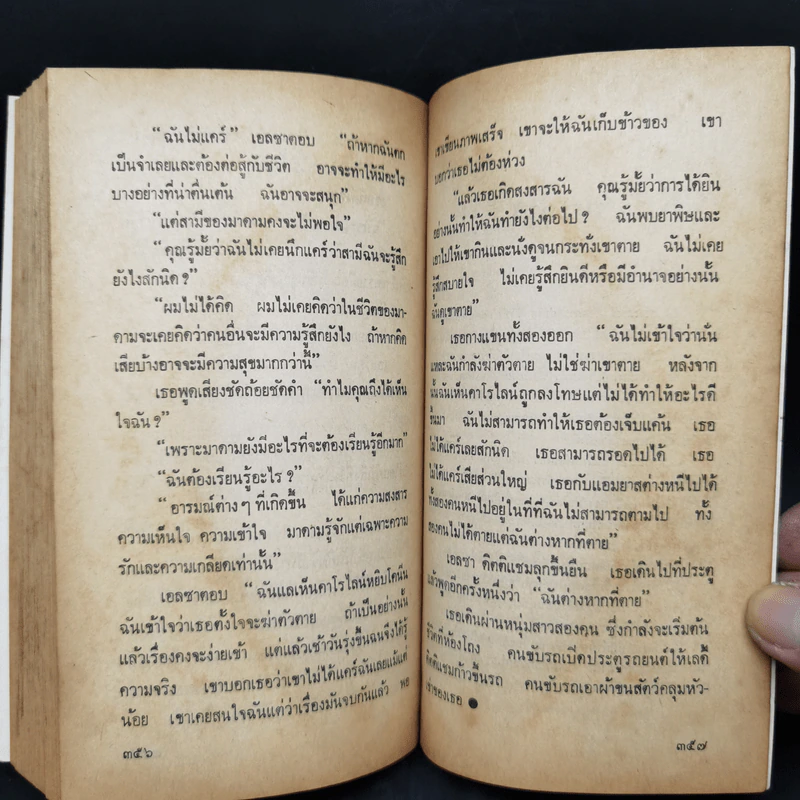 “ฉันไม่แคร์” เอลซาตอบ “ถ้าหากฉันตก
เป็นจำเลยและต้องต่อสู้กับชีวิต อาจจะทำให้มีอะไร
บางอย่างที่น่าตื่นเต้น ฉันอาจจะสนุก”
“แต่สามีของมาดามคงจะไม่พอใจ”
“คุณรู้มั้ยว่าฉันไม่เคยนึกแคร์ว่าสามีฉันจะรู้สึก
ยังไงสักนิด?”
“ผมไม่ได้คิด ผมไม่เคยคิดว่าในชีวิตของมา-
ดามจะเคยคิดว่าคนอื่นจะมีความรู้สึกยังไง ถ้าหากคิด
เสียบ้างอาจจะมีความสุขมากกว่านี้”
เธอพูดเสียงชัดถ้อยชัดคำ “ทำไมคุณถึงได้เห็น
ใจฉัน?”
“เพราะมาดามยังมีอะไรที่จะต้องเรียนรู้อีกมาก”
“ฉันต้องเรียนรู้อะไร?”
“อารมณ์ต่างๆ ที่เกิดขึ้น ได้แก่ความสงสาร
ความเห็นใจ ความเข้าใจ มาดามรู้จักแต่เฉพาะความ
รักและความเกลียดเท่านั้น”
เอลซาตอบ “ฉันแลเห็นคาโรไลน์หยิบโคนีน
ฉันเข้าใจว่าเธอตั้งใจจะฆ่าตัวตาย ถ้าเป็นอย่างนั้น
แล้วเรื่องคงจะง่ายเข้า แต่แล้วเช้าวันรุ่งขึ้นฉันจึงได้รู้
ความจริง เขาบอกเธอว่าเขาไม่ได้แคร์ฉันเลยแม้แต่
น้อย เขาเคยสนใจฉันแต่ว่าเรื่องมันจบกันแล้ว พอ
๓๕๖
เขาเขียนภาพเสร็จ เขาจะให้ฉันเก็บข้าวของ เขา
บอกว่าเธอไม่ต้องห่วง
“แล้วเธอเกิดสงสารฉัน คุณรู้มั้ยว่าการได้ยิน
อย่างนั้นทำให้ฉันทำยังไงต่อไป? ฉันพบยาพิษและ
เอาไปให้เขากินและนั่งดูจนกระทั่งเขาตาย ฉันไม่เคย
รู้สึกสบายใจ ไม่เคยรู้สึกยินดีหรือมีอำนาจอย่างนั้น
ฉันดูเขาตาย”
เธอกางแขนทั้งสองออก “ฉันไม่เข้าใจว่านั่น
แหละฉันกำลังฆ่าตัวตาย ไม่ใช่ฆ่าเขาตาย หลังจาก
นั้นฉันเห็นคาโรไลน์ถูกลงโทษแต่ไม่ได้ทำให้อะไรดี
ขึ้นมา ฉันไม่สามารถทำให้เธอต้องเจ็บแค้น เธอ
ไม่ได้แคร์เลยสักนิด เธอสามารถรอดไปได้ เธอ
ไม่ได้แคร์เสียส่วนใหญ่ เธอกับแอมยาสต่างหนีไปได้
ทั้งสองคนหนีไปอยู่ในที่ที่ฉันไม่สามารถตามไป ทั้ง
สองคนไม่ได้ตายแต่ฉันต่างหากที่ตาย”
เอลซา ดิตติแชมลุกขึ้นยืน เธอเดินไปที่ประตู
แล้วพูดอีกครั้งหนึ่งว่า “ฉันต่างหากที่ตาย”
เธอเดินผ่านหนุ่มสาวสองคน ซึ่งกำลังจะเริ่มต้น
ชีวิตที่ห้องโถง คนขับรถเปิดประตูรถยนต์ให้เลดี้
ดิตติแชมก้าวขึ้นรถ คนขับรถเอาผ้าขนสัตว์คลุมหัว-
เข่าของเธอ ●
๓๕๗